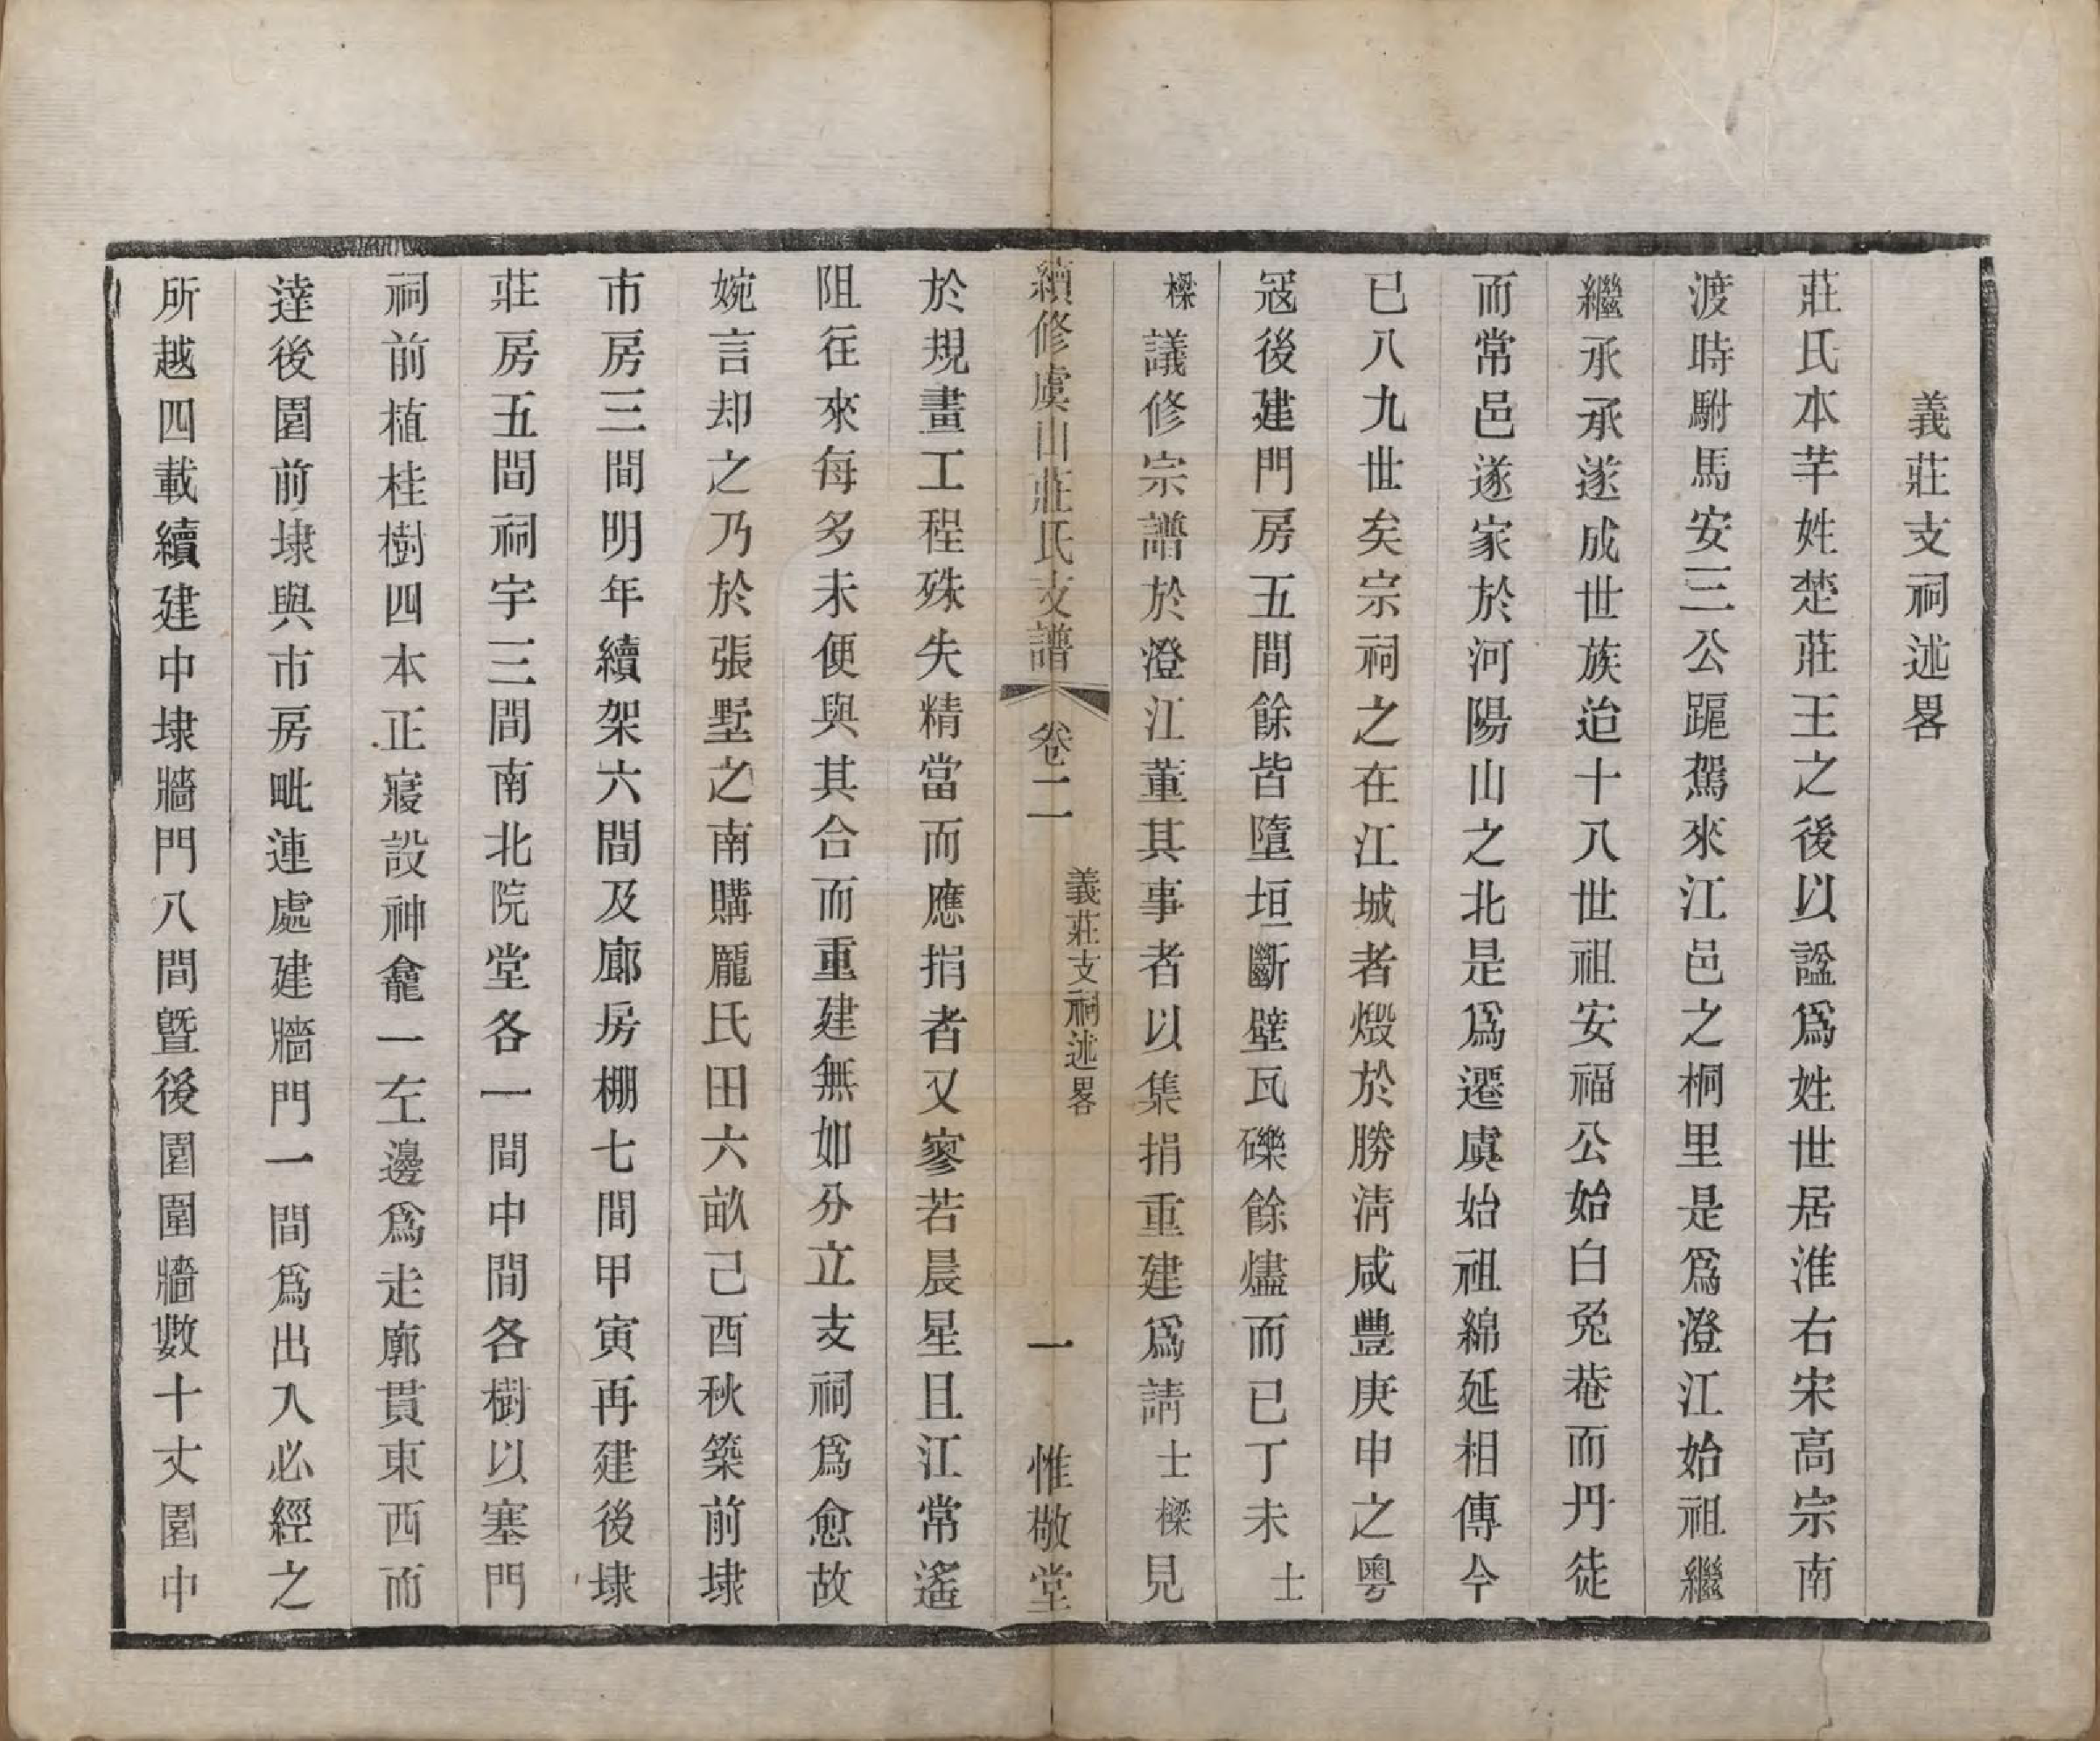 義莊支祠述畧
莊氏本芉姓楚莊王之後以謚爲姓世居淮右宋高宗南
渡時駙馬安三公蹕駕來江邑之桐里是爲澄江始祖繼
繼承承遂成世族迨十八世祖安福公始白兎菴而丹徒
而常邑遂家於河陽山之北是爲遷虞始祖綿延相傳今
已八九世矣宗祠之在江城者燬於勝淸咸豐庚申之粵
冦後建門房五間餘皆墮垣斷壁瓦礫餘燼而已丁未士
樑議修宗譜於澄江董其事者以集捐重建爲請士樑見
續修虞山莊氏支譜 卷二 義莊支祠述畧 一 惟敬堂
於規畫工程殊失精當而應捐者又寥若晨星且江常遙
阻往來每多未便與其合而重建無如分立支祠爲愈故
婉言却之乃於張墅之南購龎氏田六畝己酉秋築前埭
市房三間明年續架六間及廊房棚七間甲寅再建後埭
莊房五間祠宇三間南北院堂各一間中間各樹以塞門
祠前植桂樹四本正寢設神龕一左邊爲走廓貫東西而
達後園前埭與市房毗連處建牆門一間爲出入必經之
所越四載續建中埭牆門八間曁後園圍牆數十丈園中